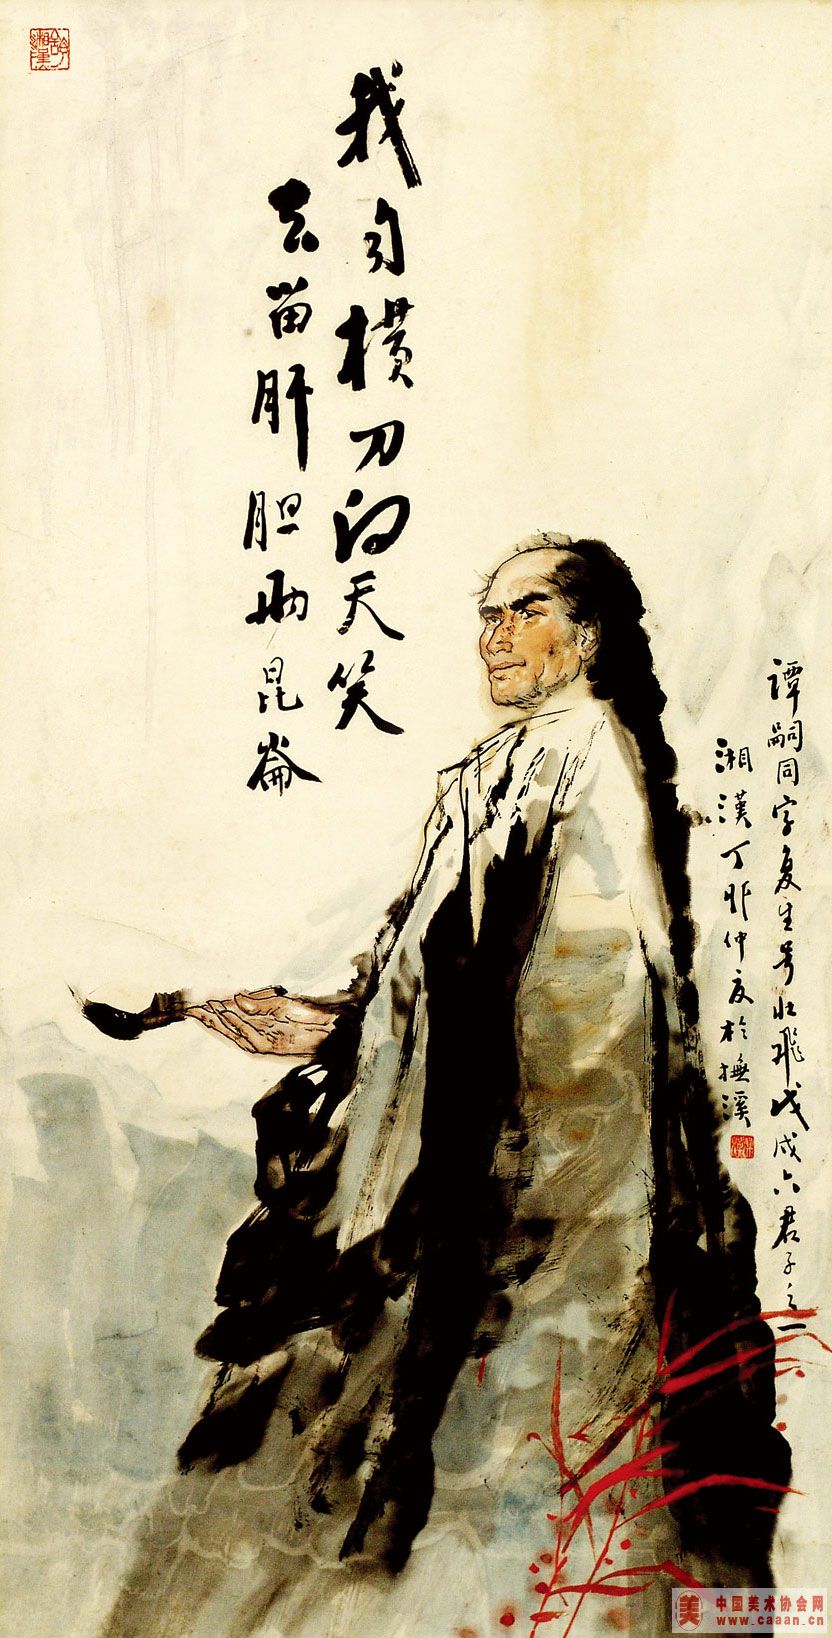 我自横刀向天笑
去留肝胆两昆崙
譚嗣同字复生号壮飛戊戌六君子之一
湘漢丁卯仲夏於撫溪
中国美术协会网
www.caaan.cn